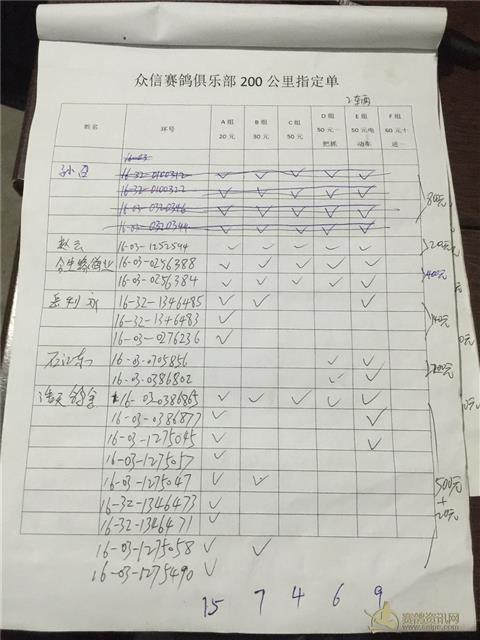 众信赛鸽俱乐部 200 公里指定单
姓名 环号 A 组 20 元 B 组 30 元 C 组 50 元 D 组 50 元一把抓 E 组 50 元电动车 F 组 60 元十进一
2车两
16-03
16-32-0100312 ✓ ✓ ✓ ✓ ✓
16-32-0100322 ✓ ✓ ✓ ✓ ✓
16-03-0320346 ✓ ✓ ✓ ✓ ✓
16-03-0320344 ✓ ✓ ✓ ✓ ✓
800元
赵云 16-03-1252544 ✓ ✓ ✓ ✓ ✓ 200元
16-03-0256388 ✓ ✓ ✓ ✓ ✓
16-03-0256384 ✓ ✓ ✓ ✓ ✓
400元
孟利永 16-32-1346485 ✓ ✓ ✓
16-32-1346483 ✓
16-03-0276236 ✓
140元
16-03-0705856 ✓ ✓
16-03-0386802 ✓ ✓
200元
浩天鸽舍 16-03-0386865 ✓ ✓ ✓ ✓ ✓
16-03-0386877 ✓ ✓
16-03-1275045 ✓ ✓
16-03-1275057 ✓
16-03-1275047 ✓ ✓
16-32-1346473 ✓
16-32-1346471 ✓
16-03-1275058 ✓ ✓
16-03-1275490 ✓
500元
+
20元
15 7 4 6 9
赛鸽资讯网
www.saige.com